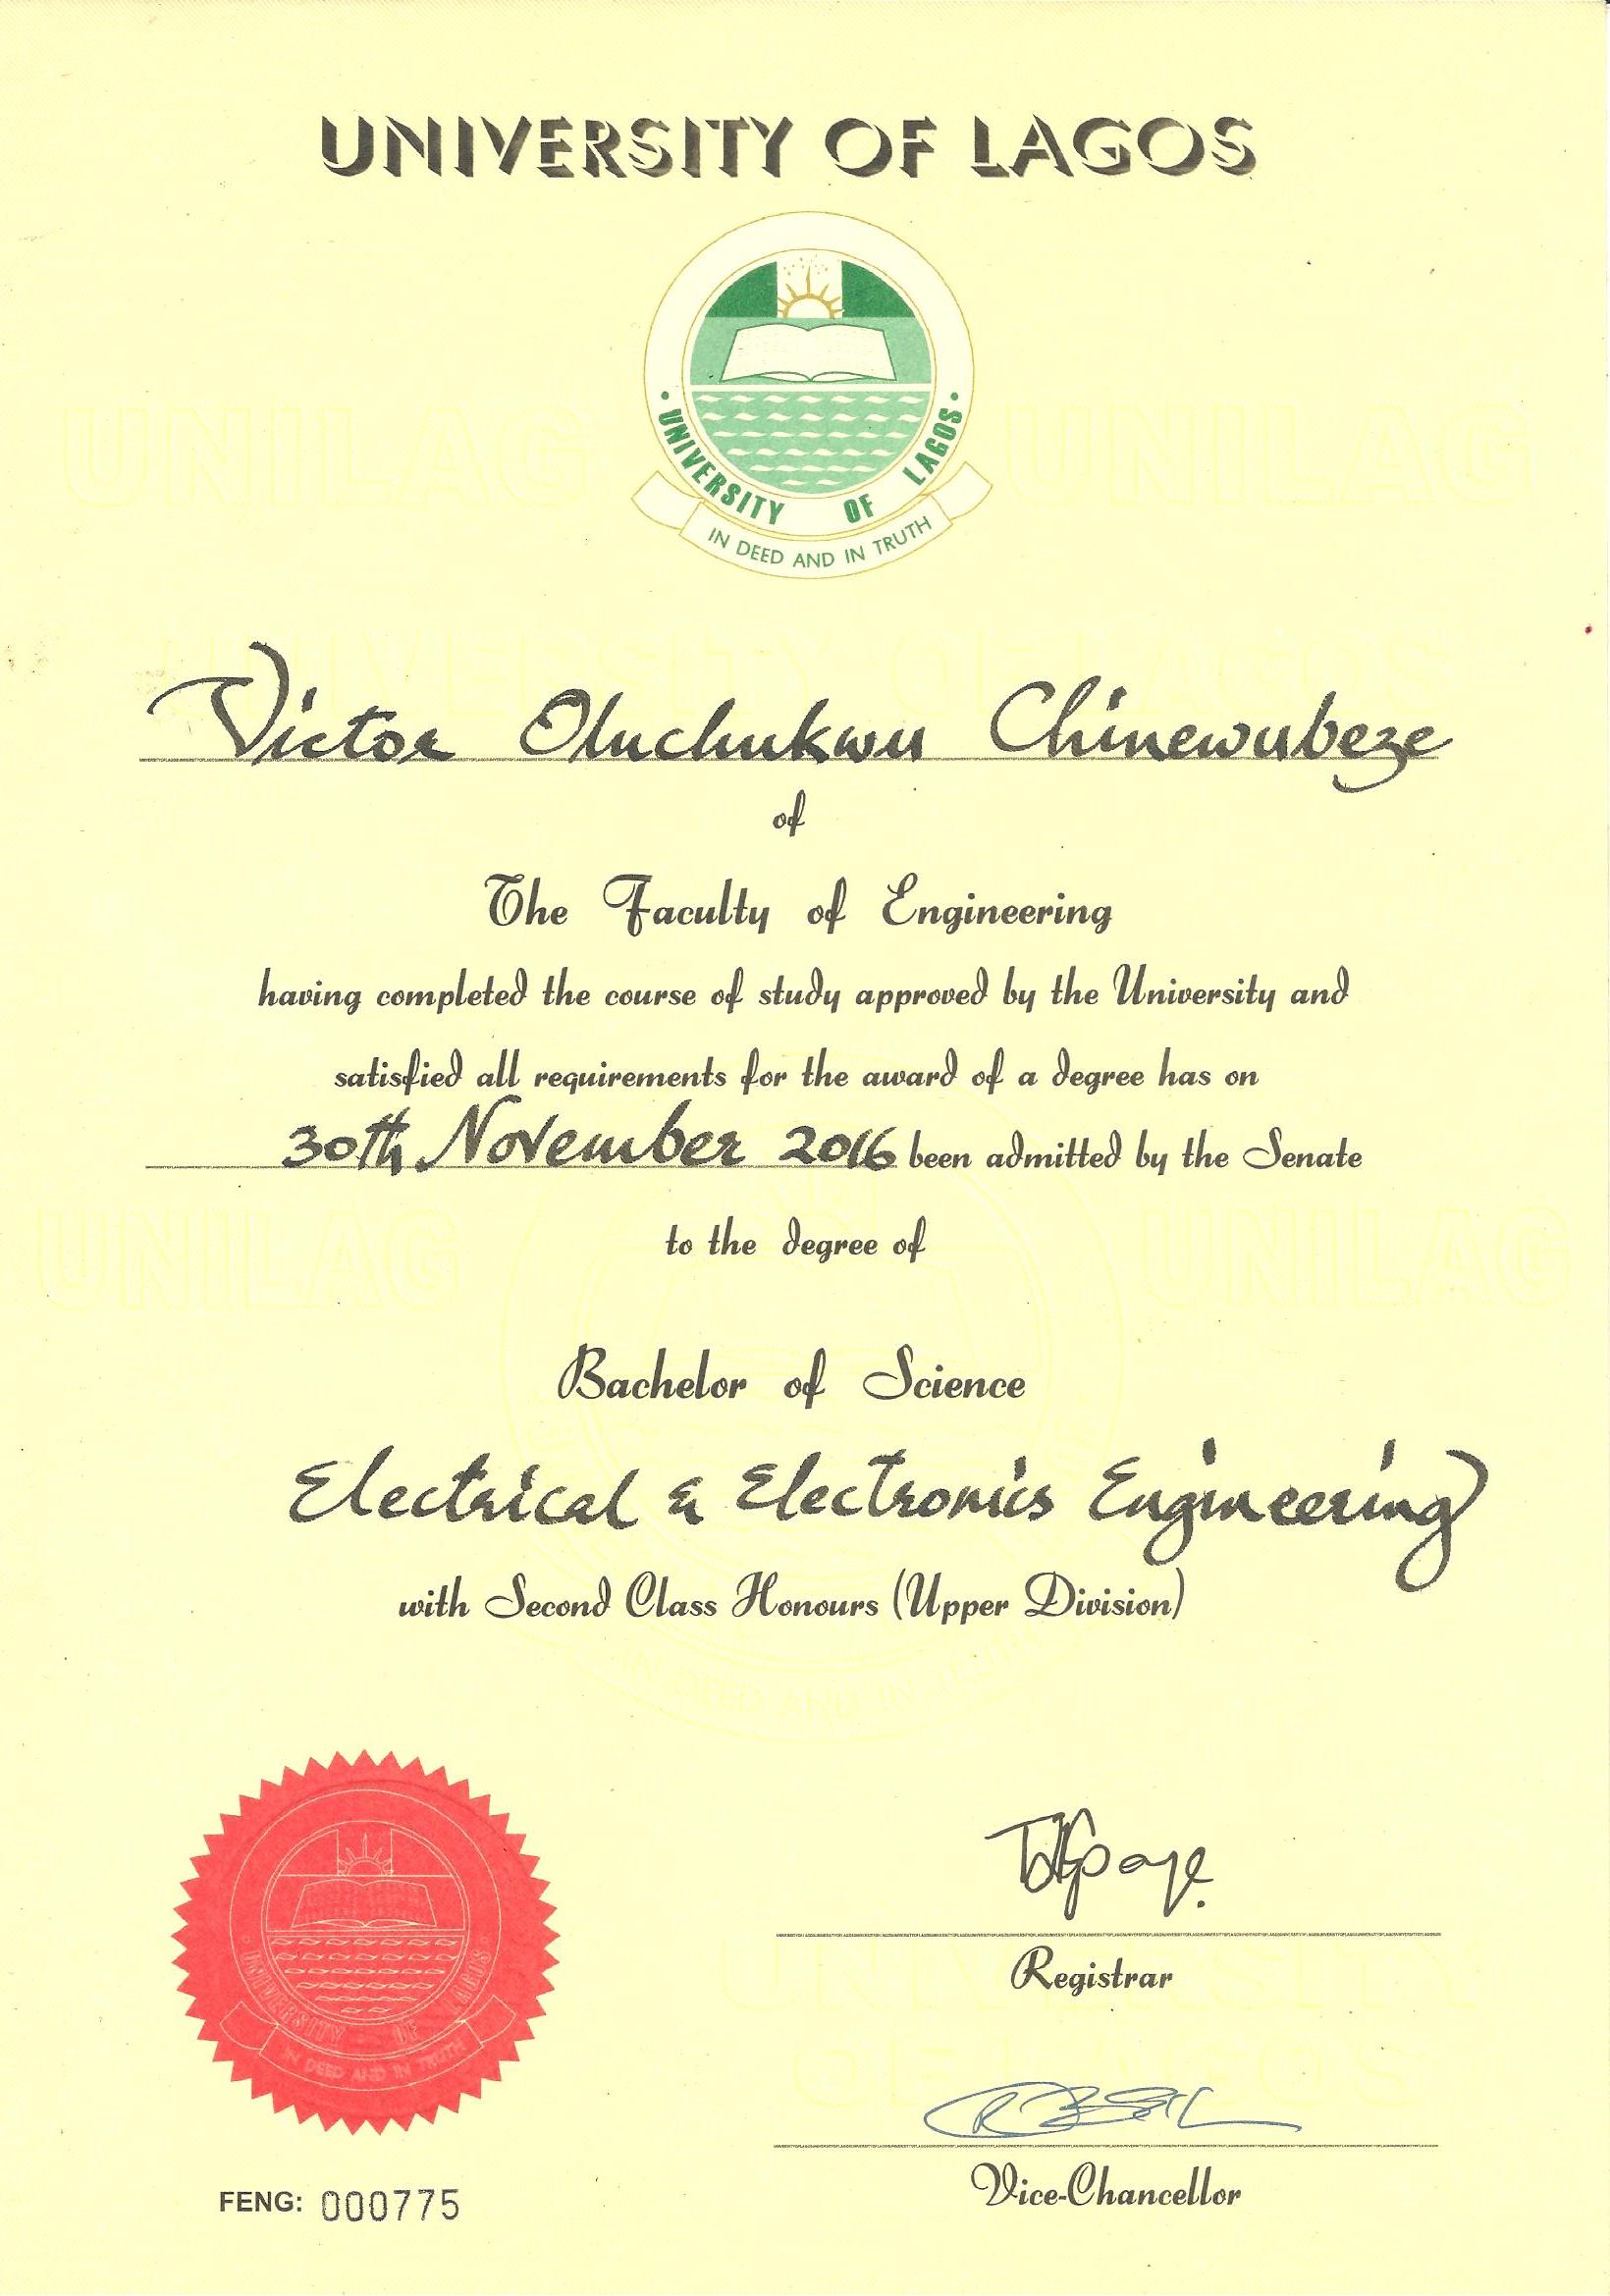 UNIVERSITY OF LAGOS
UNIVERSITY OF LAGOS
IN DEED AND IN TRUTH
UNILAG UNILAG
UNIVERSITY OF LAGOS
Victor Oluchukwu Chinewubeze
of
The Faculty of Engineering
having completed the course of study approved by the University and
satisfied all requirements for the award of a degree has on
30th November 2016 been admitted by the Senate
to the degree of
UNILAG UNILAG
Bachelor of Science
Electrical & Electronics Engineering
with Second Class Honours (Upper Division)
IN DEED AND IN TRUTH
UNIVERSITY OF LAGOS
IN DEED AND IN TRUTH
Registrar
UNIVERSITY
OF LAGOS
Vice-Chancellor
FENG: 000775